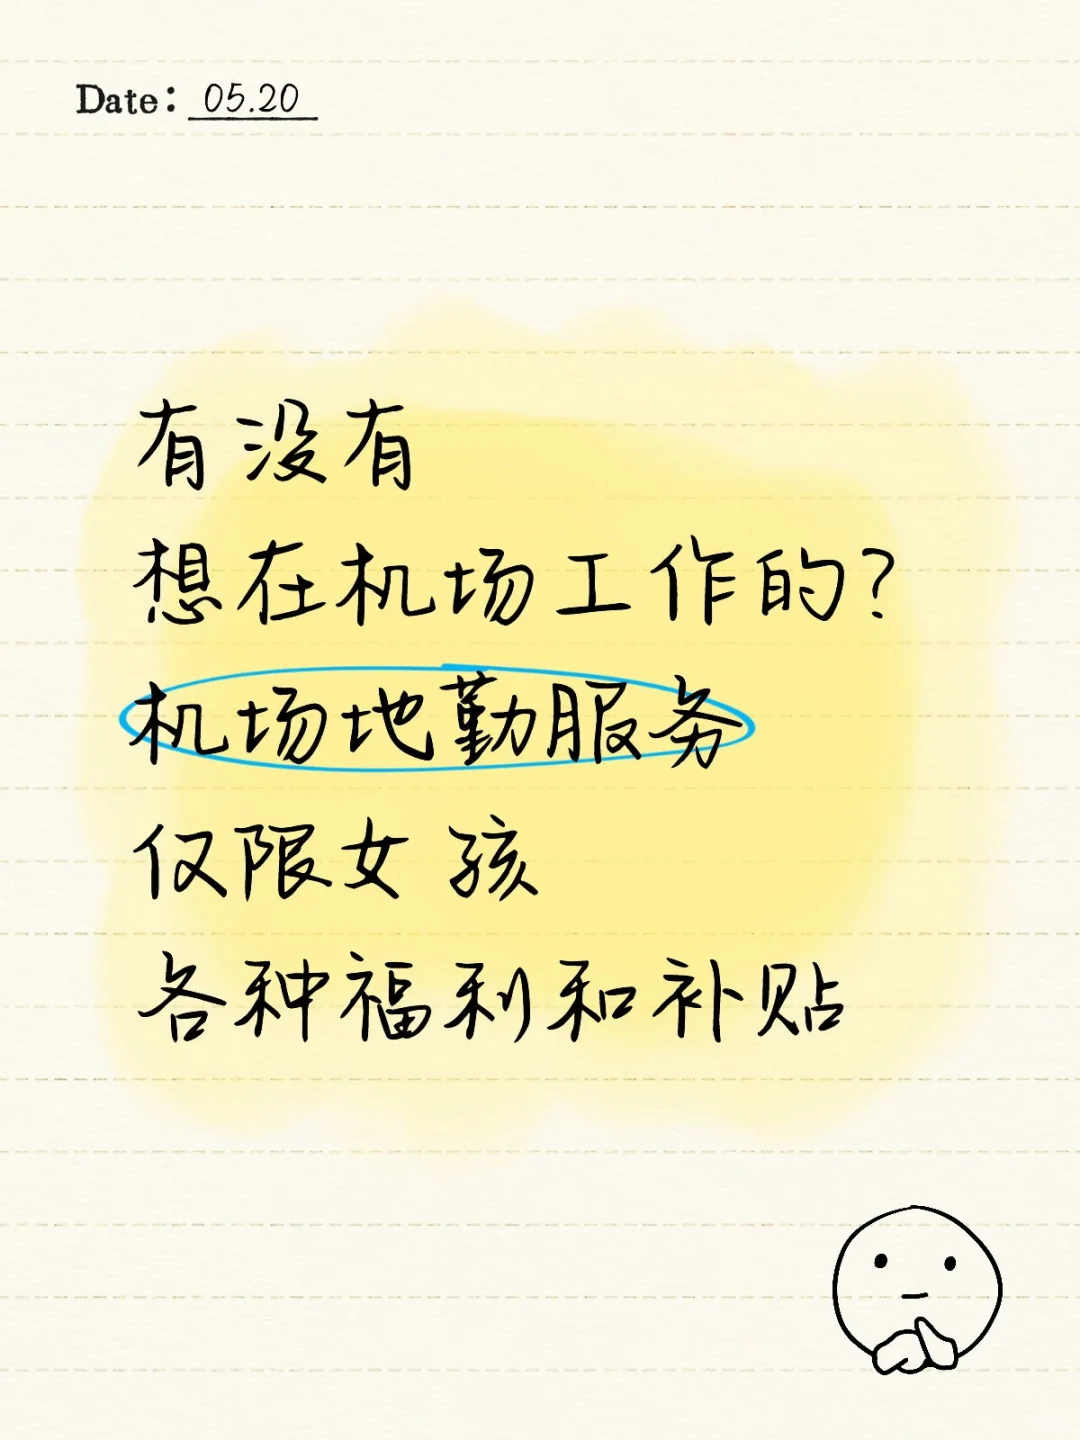 Date: 05.20
有没有
想在机场工作的?
机场地勤服务
仅限女孩
各种福利和补贴